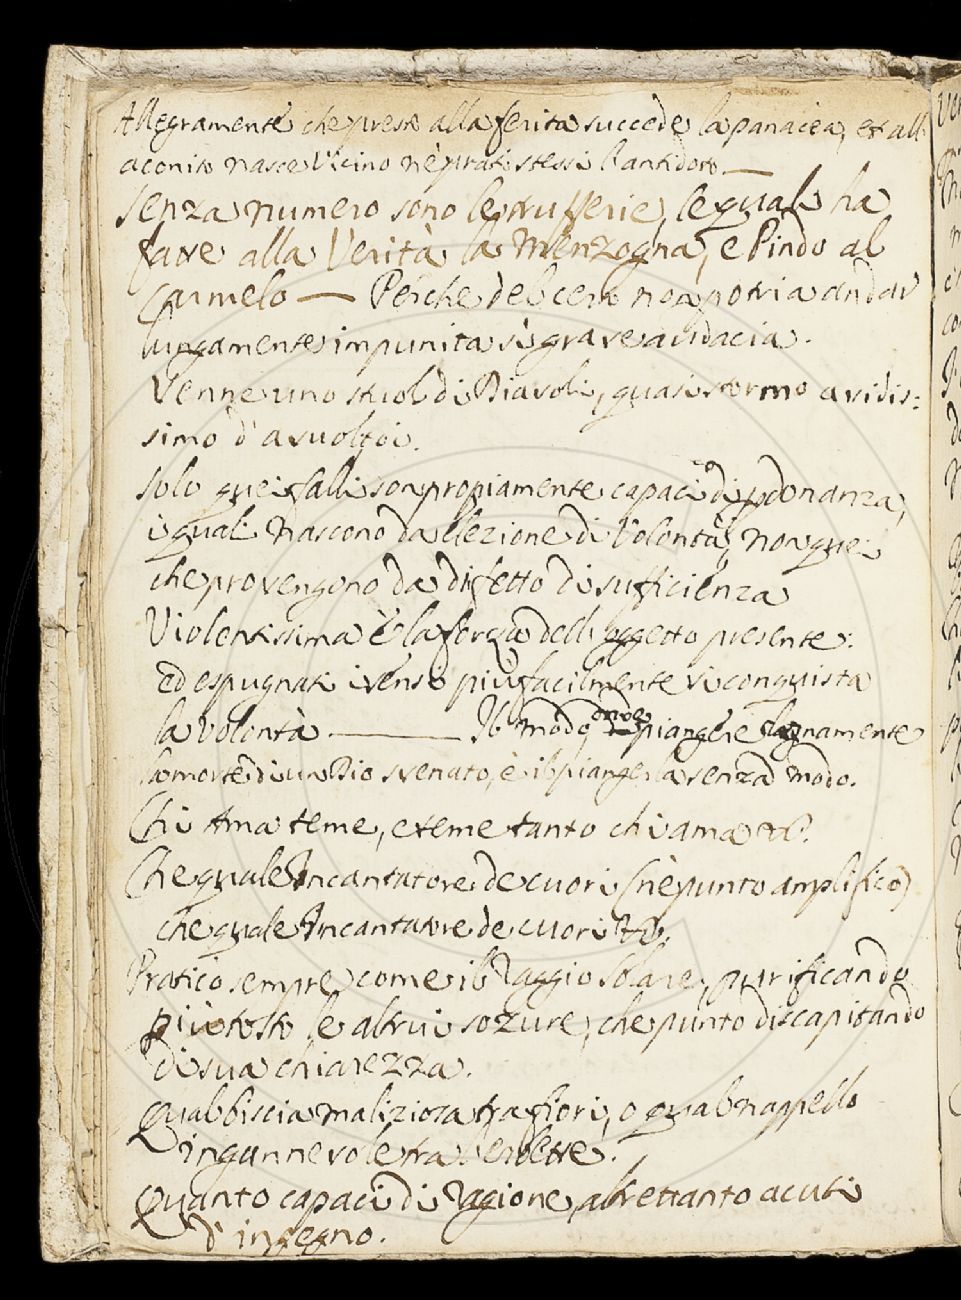 Allegramente che presto alla ferita succede la panacea, et all'
aconito nasce vicino ne' prati stessi l'antidoto —
Senza numero sono le truffe rie, le quali ha
fatte alla Verità la Menzogna, e Pindo al
Carmelo — Perche del certo non potria andar
lungamente impunita sì grave audacia.
Venne uno stuol di Diavoli, quasi stormo avidis:
simo d'avuoltoi.
Solo quei falli son propiamente capaci di pdonanza,
i quali nascono da elezione di Volontà, non quei
che provengono da difetto di sufficienza
Violentissima è la forza dell'oggetto presente:
ed espugnati i sensi più facilmente si conquista
la volontà. — Il modo, onde piangere degnamente
la morte di un Dio svenato, è il piangerla senza modo.
Chi Ama teme, e teme tanto chi ama &c.
Che quale Incantatore de cuori (nè punto amplifico)
che quale Incantatore de cuori &c.
Pratico sempre come il raggio solare, purificando
più tosto le altrui sozure, che punto discapitando
di sua chiarezza.
Qual biscia maliziosa tra fiori, o qual nappello
ingannevole tra l'erbette.
Quanto capaci di ragione, altrettanto acuti
d'ingegno.